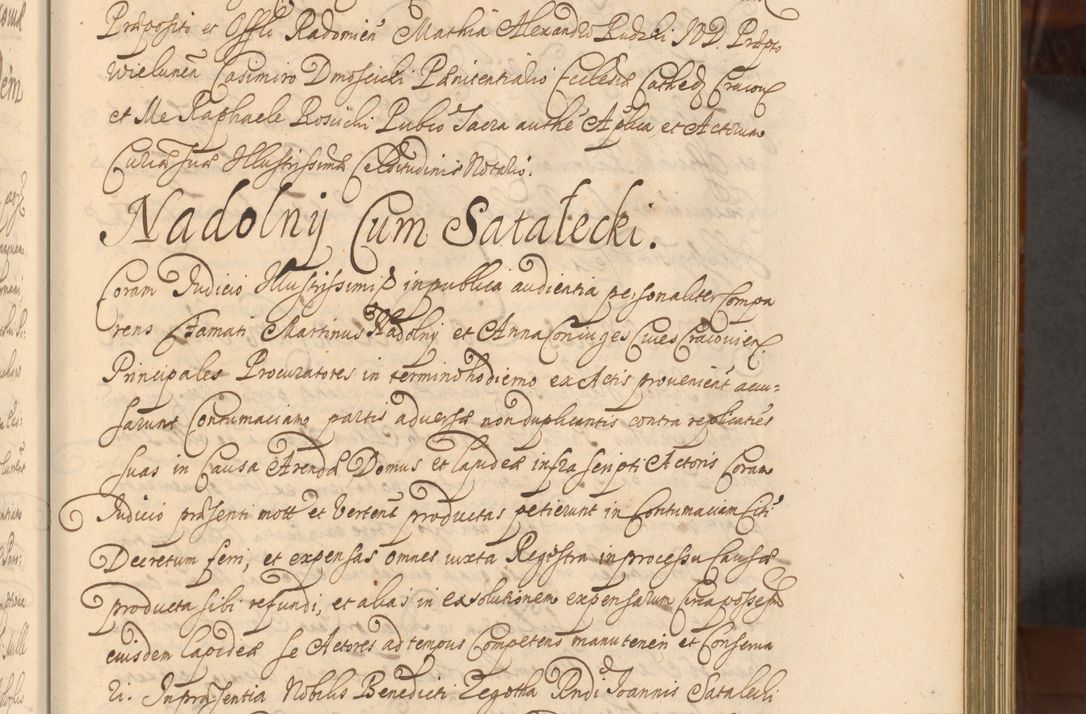 Præposito et Offli Radomien Mathia Alexandro Rudzki J.V.D. Præpto
Wielunen Casimiro Dmosicki Pænitentiario Ecclesiæ Cathed Cracov
et Me Raphaele Rosicki Publco Sacra authe Aplica et Actorum
Curiæ Suæ Illustrissimæ Celsitudinis Notario.
Nadolny Cum Satałecki.
Coram Judicio Illustrissimi in publica audientia personaliter Compa
rens Famati Martinus Nadolny et Anna Coniuges Cives Cracovien
Principales Procuratores in termino hodierno ex Actis provenient accu=
sarunt Contumaciam partis adversæ non duplicantis contra replicates
suas in Causa Arendæ Domus et lapideæ infra scripti Actoris Coram
Judicio præsenti mott et Vertent productas petierunt in Contumaciam Citi
Decretum ferri, et expensas omnes iuxta Regestra in processu Causæ
producta sibi refundi, et alias in exsolutionem expensarum Circa possem
eiusdem lapideæ se Actores ad tempus Competens manuteneri et Conserva
ri. In præsentia Nobilis Benedicti Zegotha Rndi Joannis Satalecki